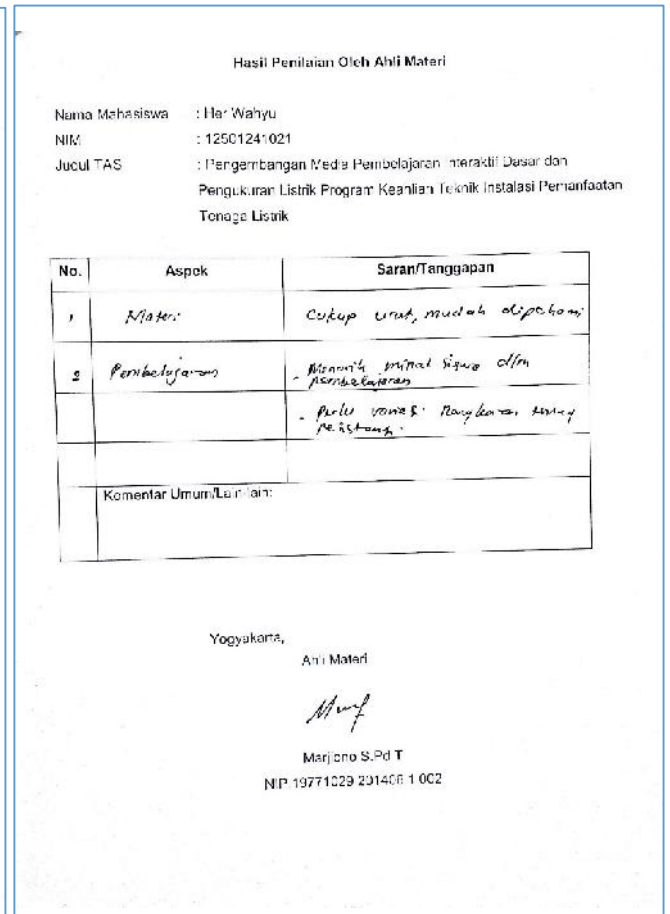 Hasil Penilaian Oleh Ahli Materi
Nama Mahasiswa : Her Wahyu
NIM : 12501241021
Judul TAS : Pengembangan Media Pembelajaran Interaktif Dasar dan
Pengukuran Listrik Program Keahlian Teknik Instalasi Pemanfaatan
Tenaga Listrik
No. Aspek Saran/Tanggapan
1 Materi Cukup urut, mudah dipahami
2 Pembelajaran - Menarik minat siswa dlm
pembelajaran
- Perlu variasi rangkaian
Komentar Umum/Lain-lain:
Yogyakarta,
Ahli Materi
Marjiono S.Pd T
NIP. 19771029 201406 1 002